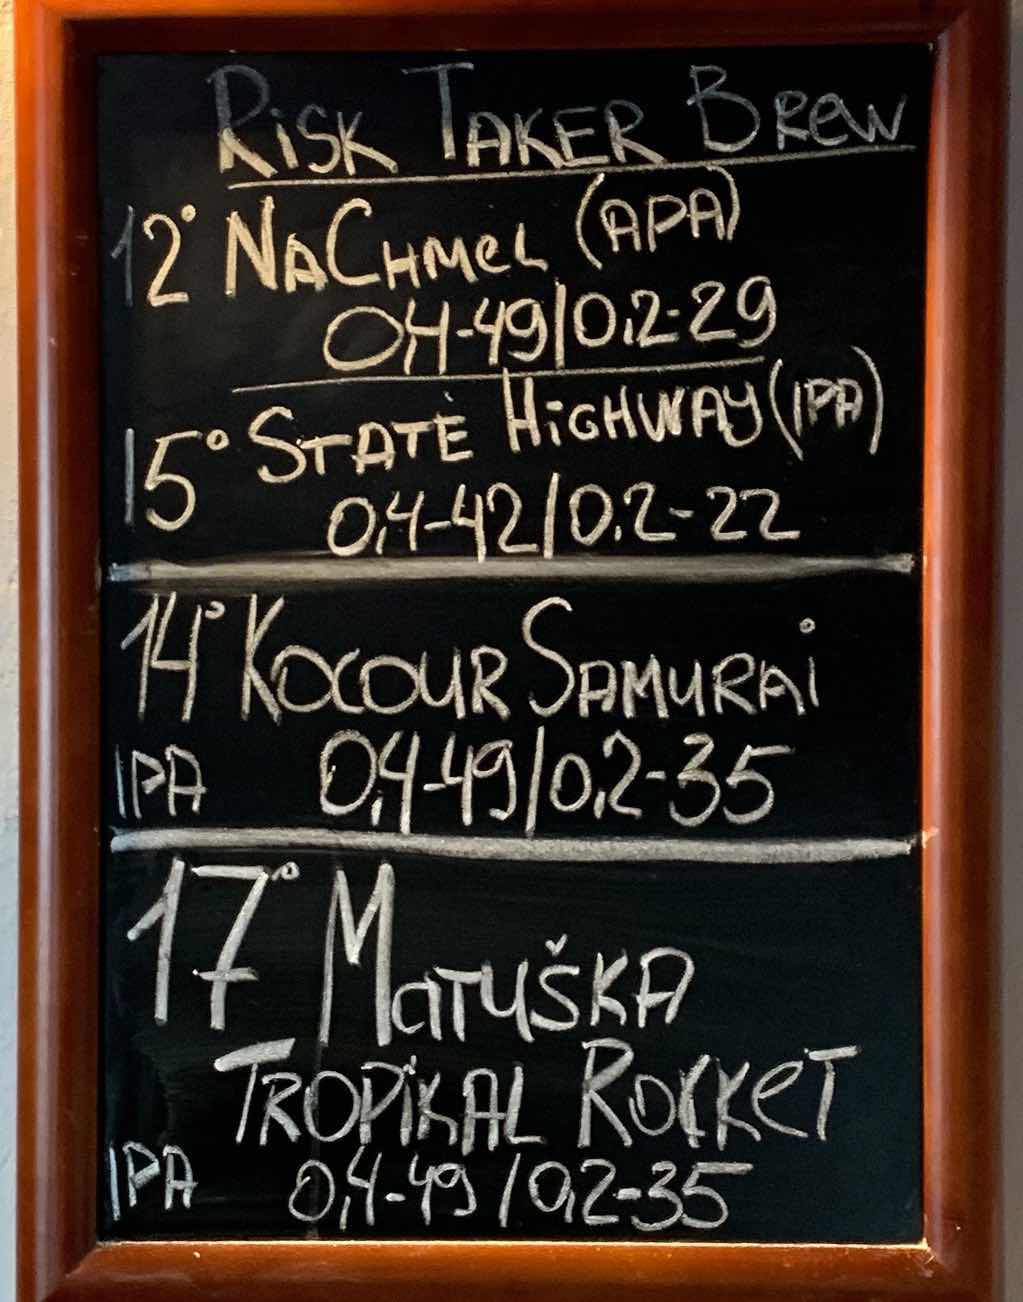 RiSK TAKER BREW
12° NACHMEL (APA)
0,4-49/0,2-29
15° STATE HiGHWAY (IPA)
0,4-42/0,2-22
14° KOCOUR SAMURAi
IPA 0,4-49/0,2-35
17° MATUŠKA
TROPiKAL ROCKET
IPA 0,4-49/0,2-35